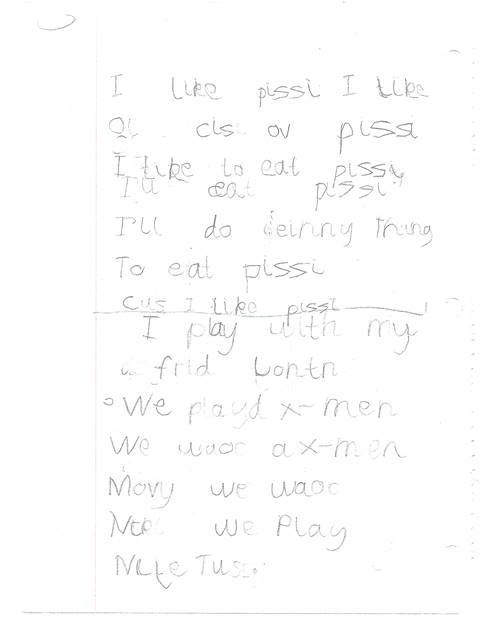 I like pissi I like
Ol cis ov pissi
I like to eat pissi
I'll eat pissi
I'll do einny thing
To eat pissi
cus I like pissi
I play with my
frid
We playd x-men
We wooc a x-men
Movy we wooc
we Play